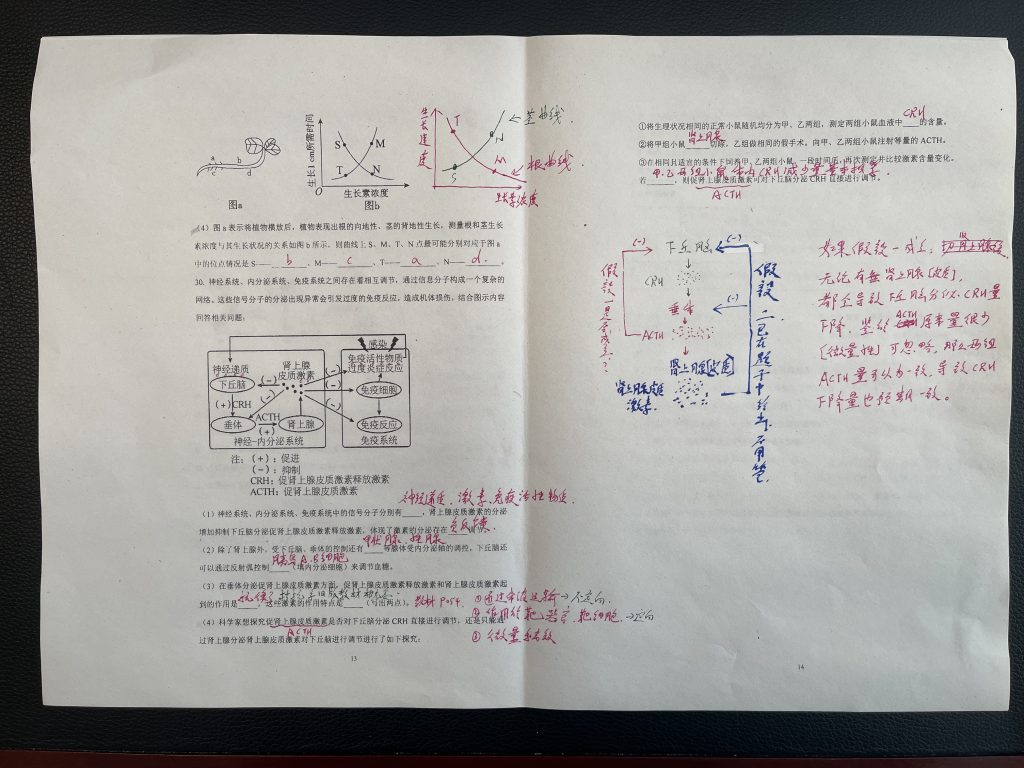 a
b
c
d
图a
生长1 cm所需时间
S
M
T
N
O
生长素浓度
图b
生长速度
T
N
S
M
←茎曲线
←根曲线
生长素浓度
(4) 图a表示将植物横放后，植物表现出根的向地性、茎的背地性生长，测量根和茎生长
素浓度与其生长状况的关系如图b所示。则曲线上S、M、T、N点最可能分别对应于图a
中的位点情况是 S—— b 、M—— c 、T—— a 、N—— d 。
30. 神经系统、内分泌系统、免疫系统之间存在着相互调节，通过信息分子构成一个复杂的
网络。这些信号分子的分泌出现异常会引发过度的免疫反应，造成机体损伤。结合图示内容
回答相关问题：
感染
神经递质
肾上腺
皮质激素
免疫活性物质
过度炎症反应
下丘脑
(−)
(−)
(−)
(−)
免疫细胞
(+)
CRH
垂体
ACTH
(+)
肾上腺
免疫反应
神经-内分泌系统
免疫系统
注：(+)：促进
(−)：抑制
CRH：促肾上腺皮质激素释放激素
ACTH：促肾上腺皮质激素
神经递质、激素、免疫活性物质
(1) 神经系统、内分泌系统、免疫系统中的信号分子分别有____，肾上腺皮质激素的分泌
增加抑制下丘脑分泌促肾上腺皮质激素释放激素，体现了激素的分泌存在____调节。
负反馈
甲状腺、性腺
(2) 除了肾上腺外，受下丘脑、垂体的控制还有____等腺体受内分泌轴的调控。下丘脑还
胰岛A、B细胞
可以通过反射弧控制____(填内分泌细胞)来调节血糖。
(3) 在垂体分泌促肾上腺皮质激素方面，促肾上腺皮质激素释放激素和肾上腺皮质激素起
到的作用是____，这些激素的作用特点是____（写出两点）。
教材P54.
①通过体液运输→不定向.
②作用于靶器官、靶细胞→定向
③微量和高效
(4) 科学家想探究促肾上腺皮质激素是否对下丘脑分泌CRH直接进行调节，还是只能通
ACTH
过肾上腺分泌肾上腺皮质激素对下丘脑进行调节进行了如下探究：
13
CRH
①将生理状况相同的正常小鼠随机均分为甲、乙两组，测定两组小鼠血液中____的含量。
肾上腺
②将甲组小鼠____切除，乙组做相同的假手术。向甲、乙两组小鼠注射等量的ACTH。
③在相同且适宜的条件下饲养甲、乙两组小鼠，一段时间后，再次测定并比较激素含量变化。
甲、乙两组小鼠体内CRH减少量基本相等
若____，则促肾上腺皮质激素可对下丘脑分泌CRH直接进行调节。
ACTH
(−)
下丘脑
(−)
CRH
垂体
(−)
ACTH
肾上腺(皮质)
肾上腺皮质
激素.
假设一是否成立？
假设二已在题干中给出，不用管
如果假设一成立,
无论有无肾上腺[皮质],
都会导致下丘脑分泌CRH量
下降.鉴于ACTH原来量很少
[微量性]可忽略,那么两组
ACTH量可认为一致,导致CRH
下降量也预期一致。
14